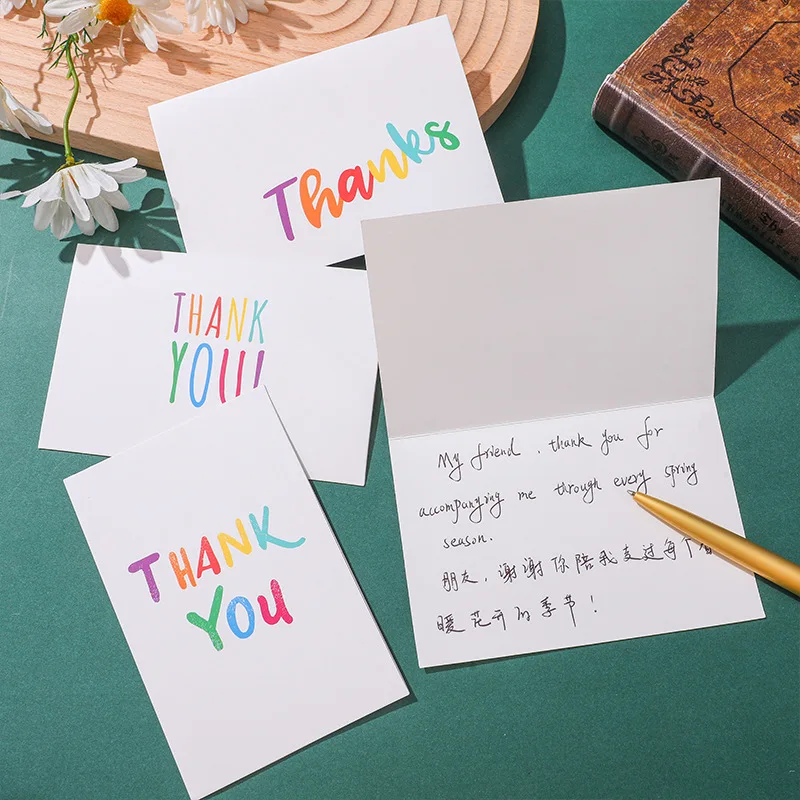 Thanks
THANK
YOU!!
THANK
YOU
My friend , thank you for
accompanying me through every spring
season.
朋友，谢谢你陪我走过每个春
暖花开的季节！
The